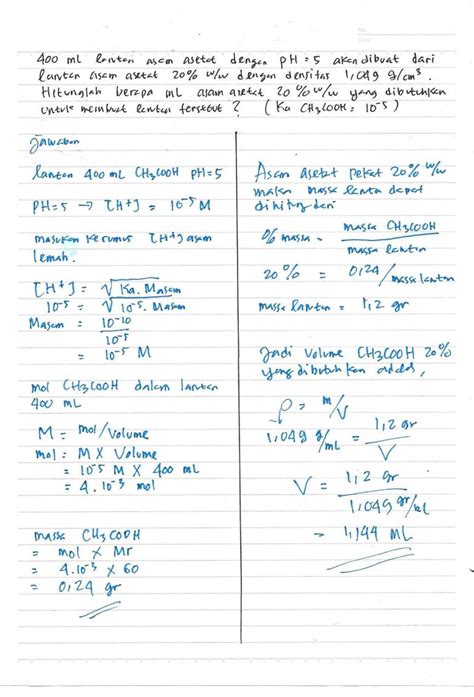 400 mL larutan asam asetat dengan pH = 5 akan dibuat dari
larutan asam asetat 20% w/w dengan densitas 1,049 g/cm³.
Hitunglah berapa mL asam asetat 20% w/w yang dibutuhkan
untuk membuat larutan tersebut ? (Ka CH₃COOH = 10⁻⁵)
Jawaban
larutan 400 mL CH₃COOH pH=5
PH=5 → [H+] = 10⁻⁵ M
masukan kerumus [H+] asam
lemah.
[H+] = √Ka. Masam
10⁻⁵ = √10⁻⁵. Masam
Masam = 10⁻¹⁰
10⁻⁵
= 10⁻⁵ M
mol CH₃COOH dalam larutan
400 mL
M = mol/Volume
mol = M x Volume
= 10⁻⁵ M x 400 mL
= 4.10⁻³ mol
massa CH₃COOH
= mol x Mr
= 4.10⁻³ x 60
= 0,24 gr
Asam asetat pekat 20% w/w
maka massa larutan dapat
dihitung dari
% massa = massa CH₃COOH
massa larutan
20% = 0,24/massa larutan
massa larutan = 1,2 gr
Jadi Volume CH₃COOH 20%
yang dibutuhkan adalah,
ρ = m/V
1,049 g/mL = 1,2 gr
V
V = 1,2 gr
1,049 gr/mL
= 1,144 mL